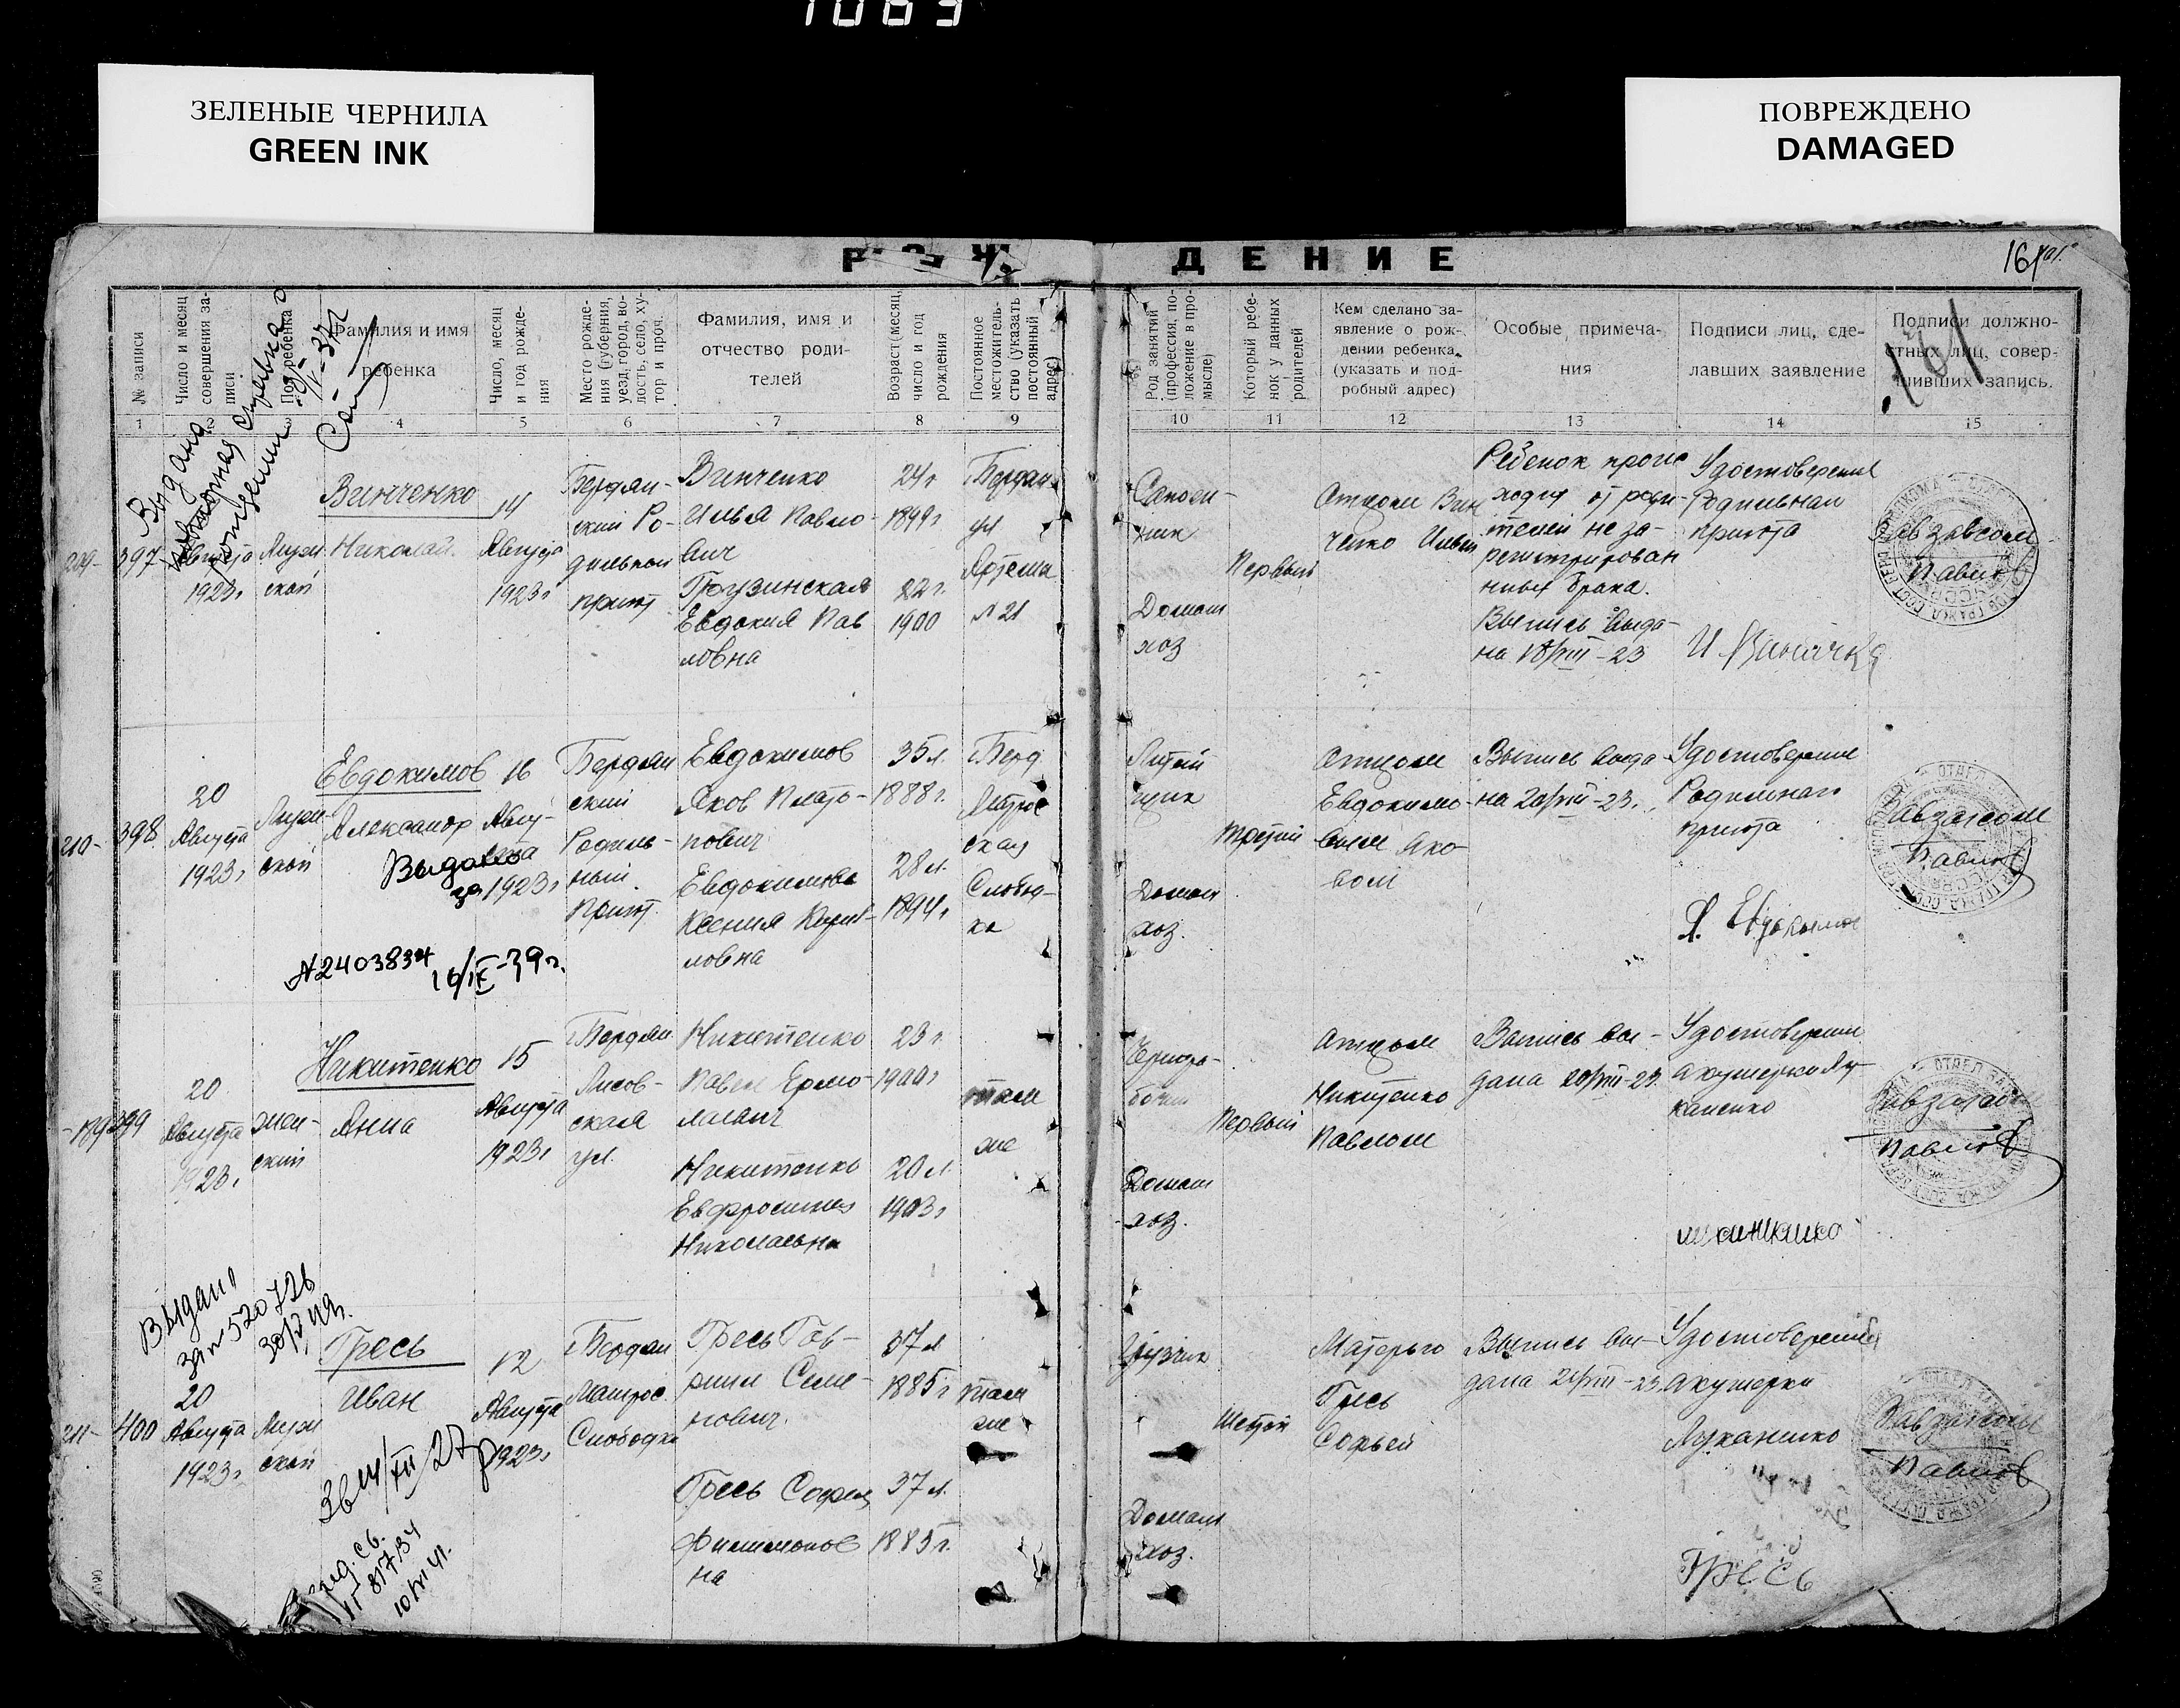 1083
ЗЕЛЕНЫЕ ЧЕРНИЛА
GREEN INK
ПОВРЕЖДЕНО
DAMAGED
ДЕНИЕ
161
№ записи
Число и месяц совершения записи
Пол ребенка
Фамилия и имя
ребенка
Число, месяц
и год рожде-
ния
Место рожде-
ния (губерния,
уезд, город, во-
лость, село, ху-
тор и проч.
Фамилия, имя и
отчество роди-
телей
Возраст (месяц,
число и год
рождения
Постоянное
местожитель-
ство (указать
постоянный
адрес)
Род занятий
(профессия, по-
ложение в про-
мысле)
Который ребе-
нок у данных
родителей
Кем сделано за-
явление о рож-
дении ребенка
(указать и под-
робный адрес)
Особые примеча-
ния
Подписи лиц, сде-
лавших заявление
Подписи должно-
стных лиц, совер-
шивших запись.
1 2 3 4 5 6 7 8 9 10 11 12 13 14 15
Выдана
повторная справка о
рождении
209- 397
Августа
1923г
Муж
ской
Винченко
Николай
14
Августа
1923г
Бердян-
ский Ро-
дильной
приют
Винченко
Илья Павло-
вич
Грузинская
Евдокия Пав
ловна
24г
1899г
22г.
1900
Бердян
ул
Артема
№ 21
Сапож-
ник
Домаш
хоз
Первый
Отцом Вин
ченко Ильей
Ребенок проис
ходит от роди-
телей не за-
регистрирован
ных брака.
Выпись выда-
на 18/VIII-23
Удостоверение
Родильнаго
приюта
Завзагсом
Павлов
210- 398
20
Августа
1923г
Муж
ской
Евдокимов
Александр
16
Авгу-
ста
1923г
Выдано
№2403834
16/IX-39г.
Бердян
ский
Родиль-
ный
Приют
Евдокимов
Яков Плато-
нович
Евдокимова
Ксения Кирил-
ловна
35л.
1888г.
28л.
1894г
Берд
Матрос
ская
Слобод-
ка
Литей
щик
Домаш
хоз.
третий
Отцом
Евдокимо-
вым Яко
вом
Выпись выда
на 20/VIII-23.
Удостоверение
Родильнаго
приюта
Я. Евдокимов
Завзагсом
Павлов
399
20
Августа
1923г
жен-
ский
Никитенко
Анна
15
Августа
1923г
Бердян
Лисов-
ская
ул.
Никитенко
Павел Ермо-
лаевич
Никитенко
Евфросиния
Николаевна
23г
1900г
20л
1903г
там
же
Черноро-
бочий
Домаш
хоз.
Первый
Отцом
Никитенко
Павлом
Выпись вы-
дана 20/VIII-23.
Удостоверение
акушерки Лу
каненко
Завзагсом
Павлов
Выдано
за № 520726
211- 400
20
Августа
1923г
Муж
ской
Гресь
Иван
12
Августа
1923г
Бердян
Матрос.
Слободка
Гресь Гав-
риил Семе-
нович.
Гресь София
Филимонов
на
37л
1885г
37л.
1885г.
там
же
Грузчик
Домаш
хоз.
Шестой
Матерью
Гресь
Софьей
Выпись вы-
дана 20/VIII-23.
Удостоверение
акушерки
Луканенко
Гресь
Завзагсом
Павлов
10/VII 41.